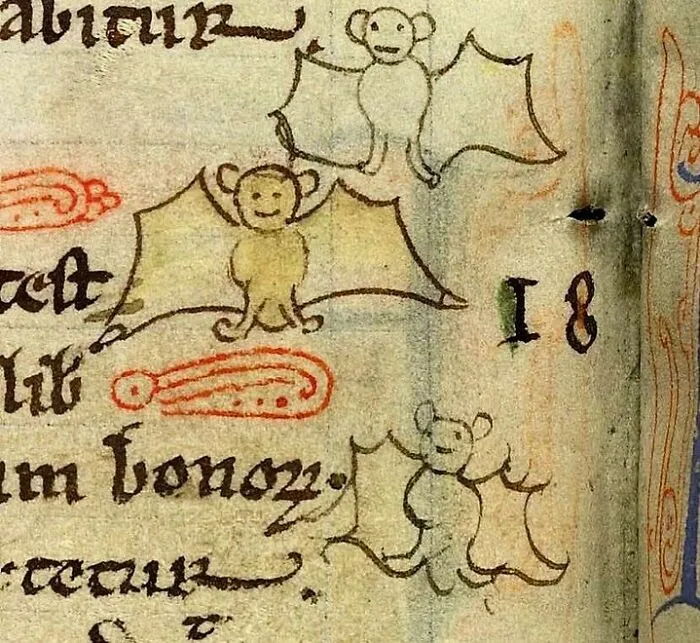 abitur
test
18
lib
um bonoꝝ
tetur